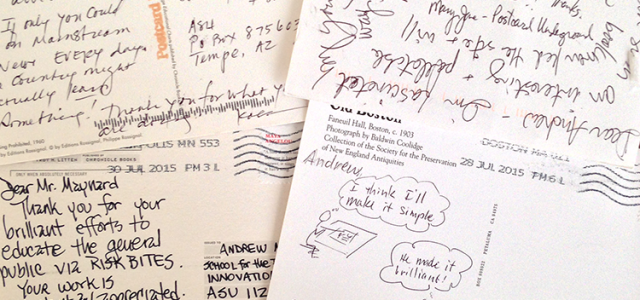 If only you could
on Mainstream
News EVERY day
a Country might
actually learn
Something!
Postcard
ASU
PO Box 875603
Tempe, AZ
Thank you for what you
all do!
by Editions Rossignol, Philippe Rossignol.
CHRONICLE BOOKS
ONLY WHEN ABSOLUTELY NECESSARY
MN 553
30 JUL 2015 PM 3 L
Dear Mr. Maynard
Thank you for your
brilliant efforts to
educate the general
public via RISK BITES.
Your work is
appreciated.
ANDREW M
SCHOOL for the
INNOVATION
ASU 112
Dear Andrew - I'm fascinated
an interesting + palatable
Old Boston
Faneuil Hall, Boston, c. 1903
Photograph by Baldwin Coolidge
Collection of the Society for the Preservation
of New England Antiquities
BOSTON MA 021
28 JUL 2015 PM 6 L
Andrew,
I think I'll
make it simple
He made it
brilliant!
PETALUMA CA 94975